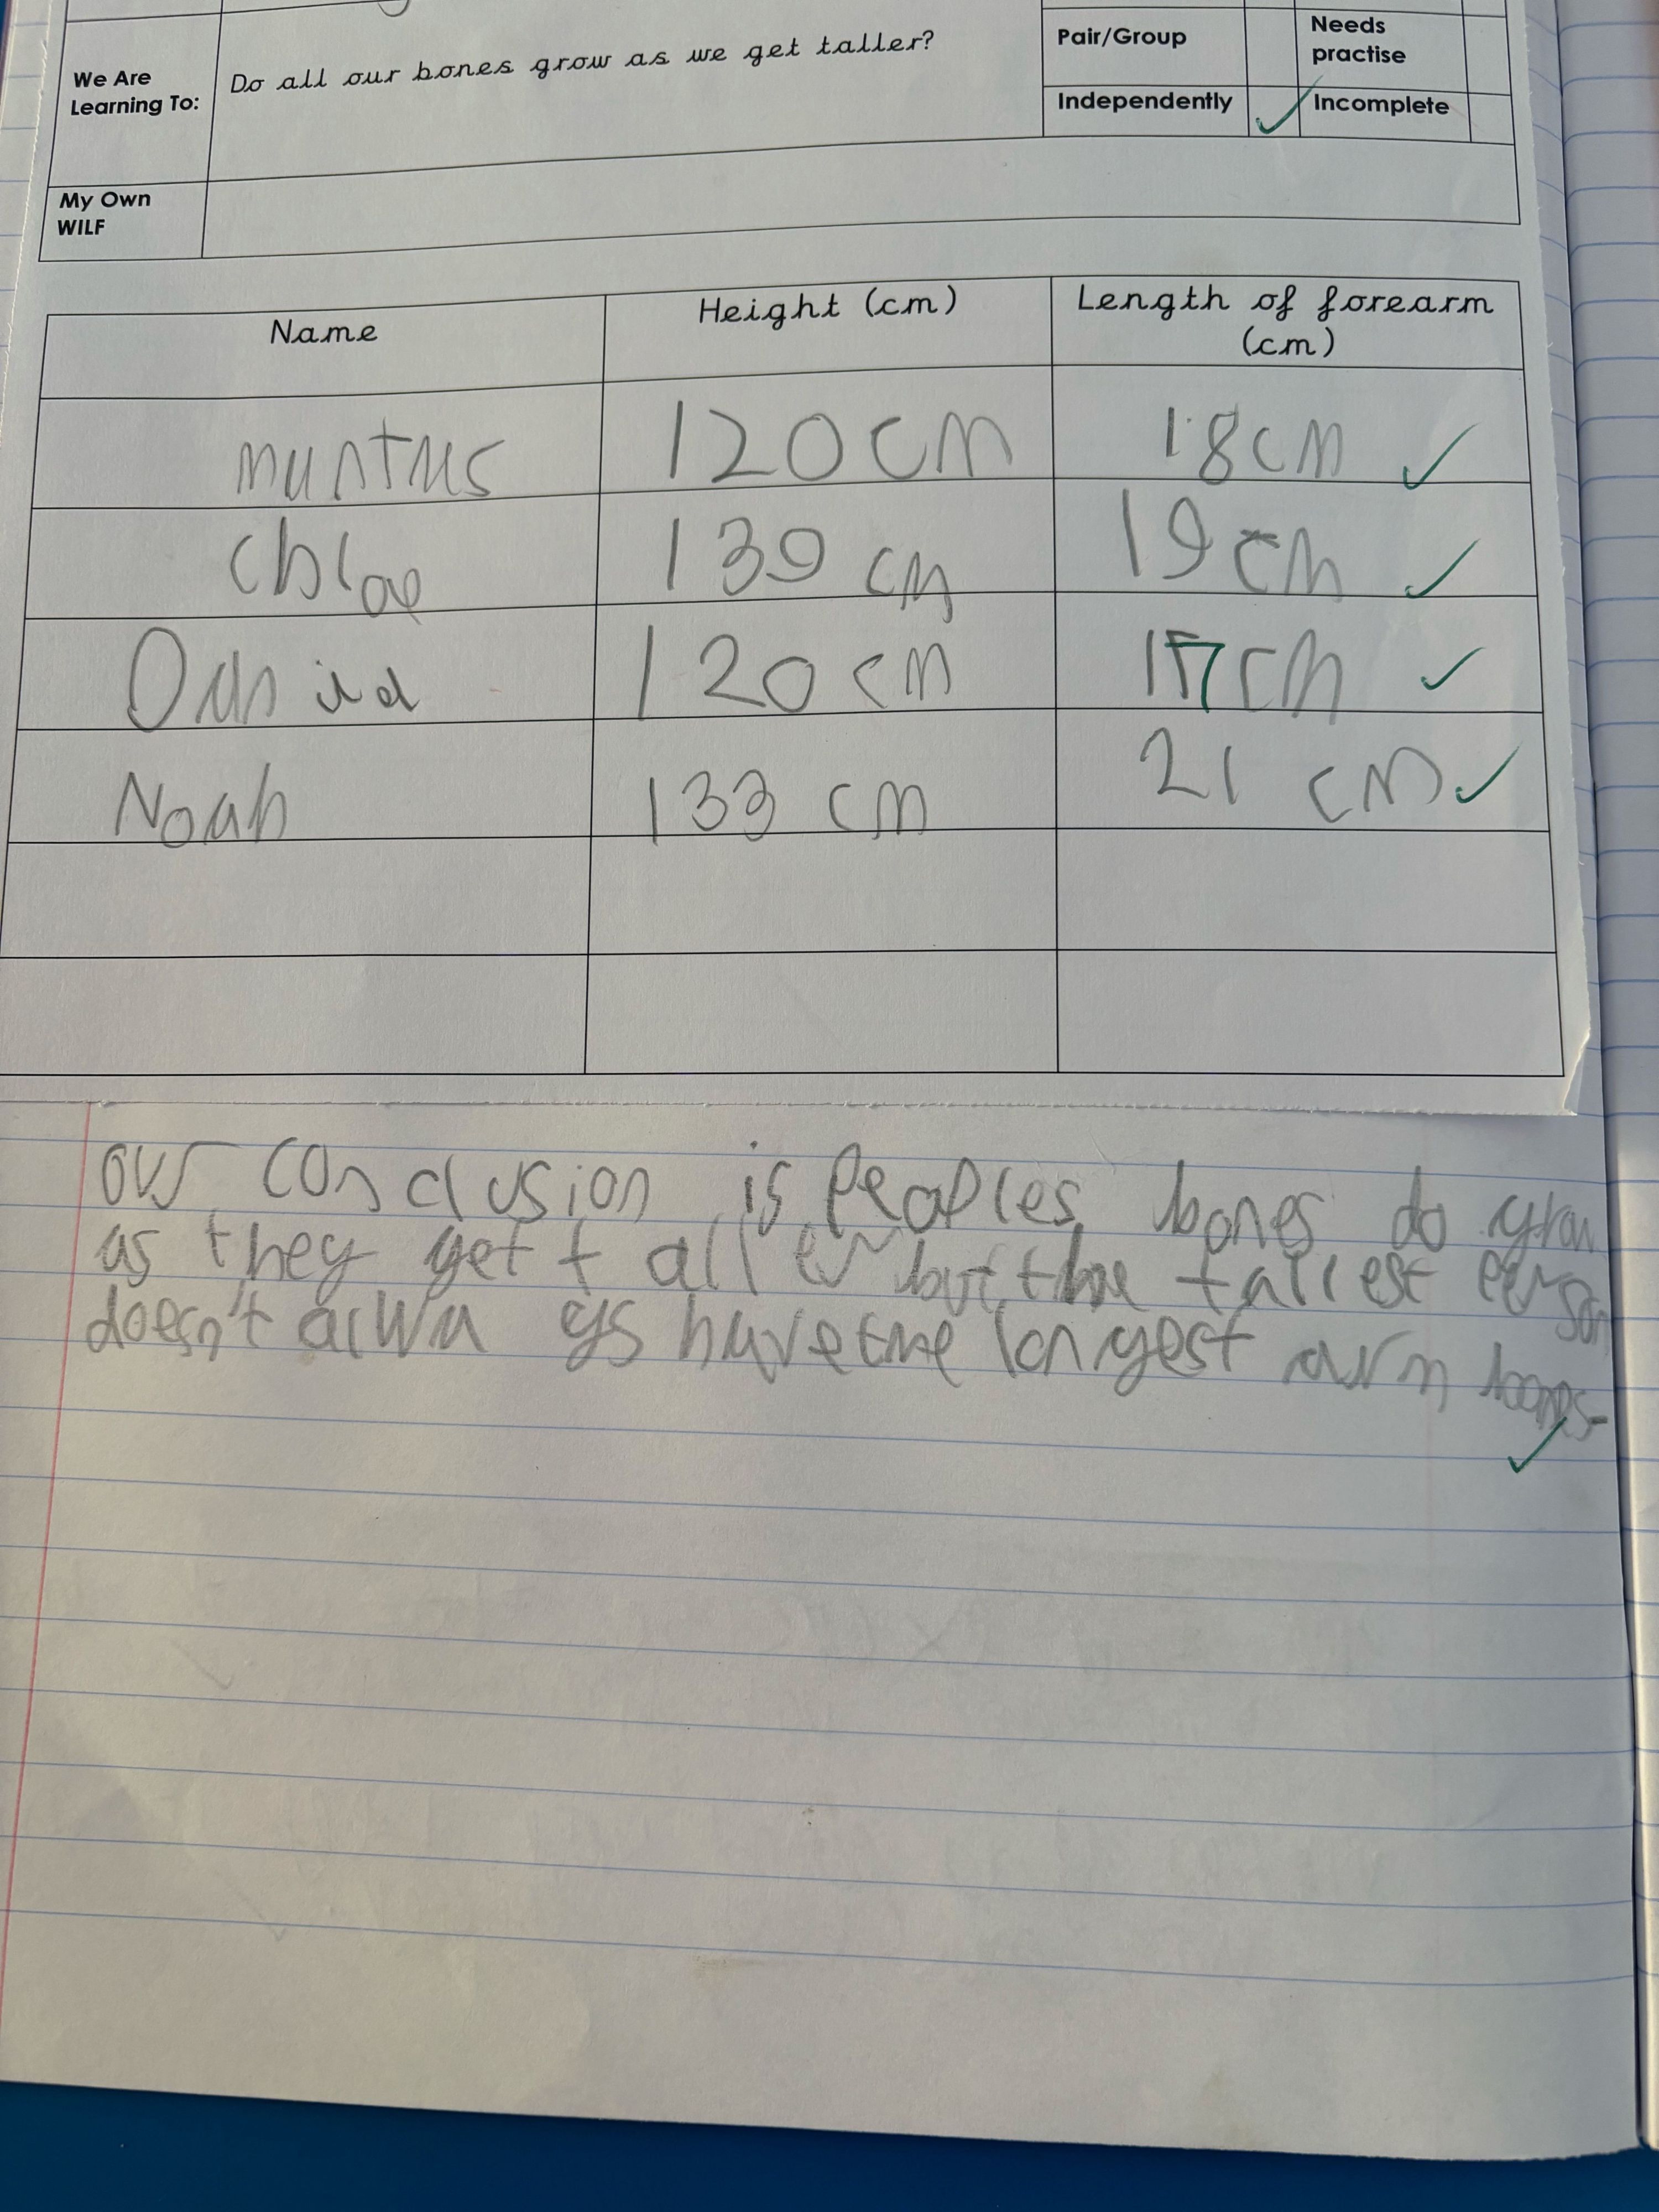 We Are Learning To: Do all our bones grow as we get taller?
Pair/Group
Needs practise
Independently ✓ Incomplete
My Own WILF
Name Height (cm) Length of forearm (cm)
120cm 18cm ✓
Chloe 139 cm 19cm ✓
120cm 17cm ✓
Noah 133 cm 21 cm ✓
our conclusion is Peoples bones do grow
as they get taller but the tallest person
doesn't always have the longest arm bones.
✓